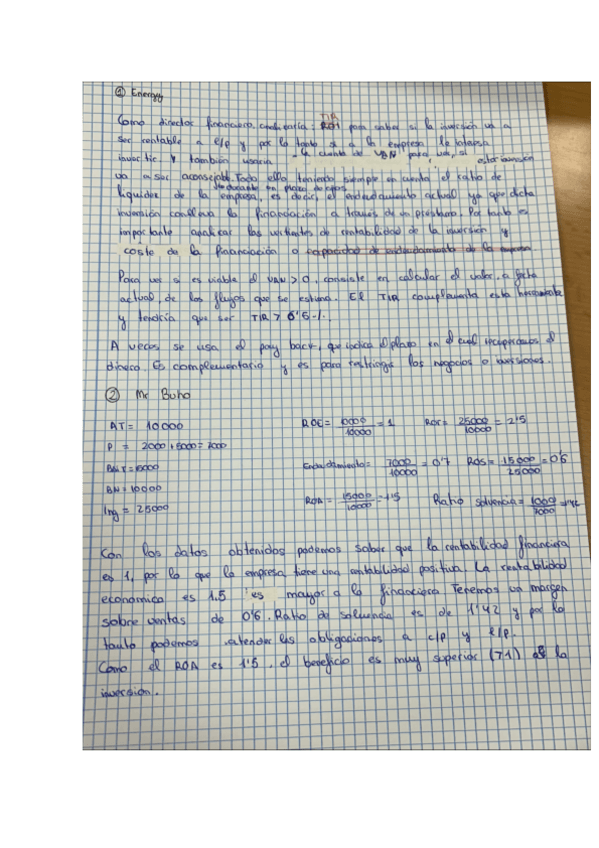 ① Energgy
TIR
Como director financiero, analizaría: ROI para saber si la inversión va a
ser rentable a c/p y por lo tanto si a la empresa le interesa
invertir y también usaría la cuenta de VAN para ver, si esta inversión
va a ser aconsejable. Todo ello teniendo siempre en cuenta el ratio de
liquidez de la empresa, es decir, el endeudamiento actual ya que dicta
inversión conlleva la financiación a través de un préstamo. Por tanto es
importante analizar las vertientes de rentabilidad de la inversión y
coste de la financiación o capacidad de endeudamiento de la empresa
Para ver si es viable el VAN > 0, consiste en calcular el valor, a fecha
actual, de los flujos que se estima. El TIR complementa esta herramienta
y tendría que ser TIR > 6'5%.
A veces se usa el pay back, que indica el plazo en el cual recuperamos el
dinero. Es complementario y es para restringir los negocios o inversiones.
② Mr Buho
AT = 10000 ROE = 10000/10000 = 1 ROT = 25000/10000 = 2'5
P = 2000 + 5000 = 7000
BAIT = 15000 Endeudamiento = 7000/10000 = 0'7 ROS = 15000/25000 = 0'6
BN = 10000
Ing = 25000 ROA = 15000/10000 = 1'5 Ratio solvencia = 1000/7000 = 1'42
Con los datos obtenidos podemos saber que la rentabilidad financiera
es 1, por lo que la empresa tiene una rentabilidad positiva. La rentabilidad
economica es 1.5 es mayor a la financiera Tenemos un margen
sobre ventas de 0'6. Ratio de solvencia es de 1'42 y por lo
tanto podemos atender las obligaciones a c/p y l/p.
Como el ROA es 1'5, el beneficio es muy superior (>1) de la
inversión.